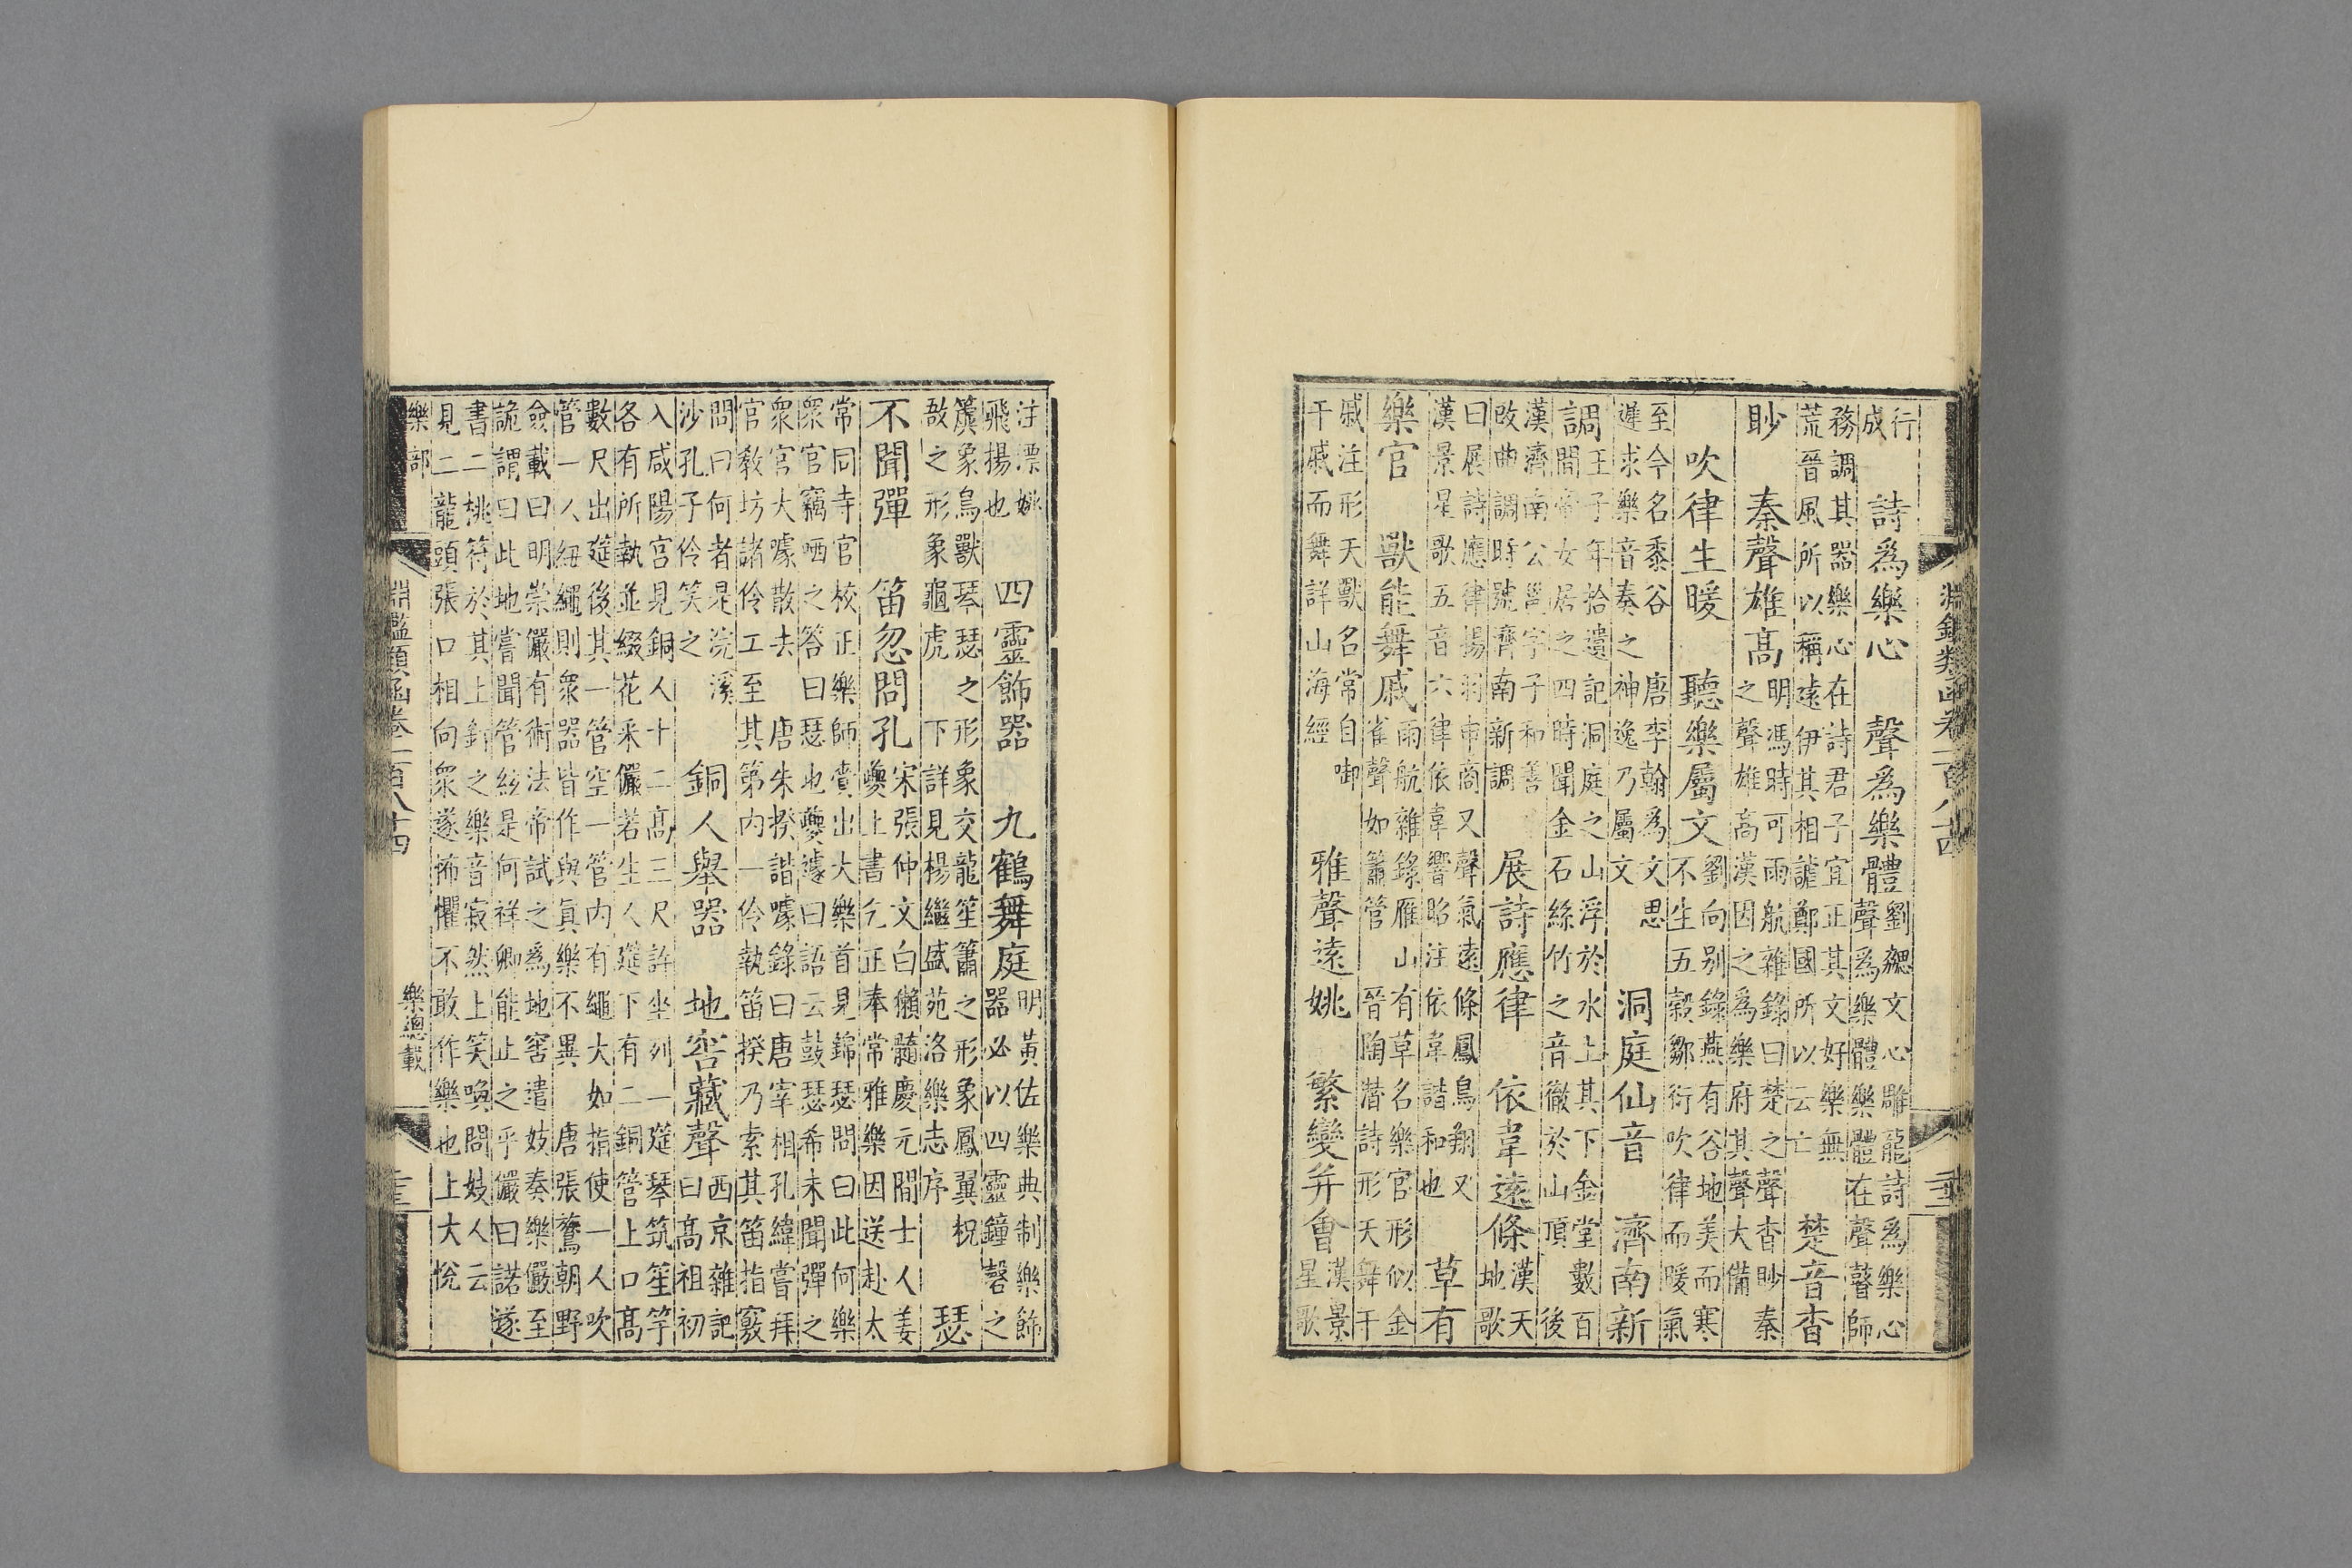 淵鑑類函卷一百八十四
行成　詩爲樂心　聲爲樂體　劉勰文心雕龍詩爲樂心
聲爲樂體樂體在聲瞽師
務調其器樂心在詩君子宜正其文好樂無
荒晉風所以稱遠伊其相謔鄭國所以云亡　楚音杳
眇　秦聲雄高　明馮時可雨航雜錄曰楚之聲杳眇秦
之聲雄高漢因之爲樂府其聲大備
吹律生暖　聽樂屬文　劉向别錄燕有谷地美而寒
不生五穀鄒衍吹律而暖氣
至今名黍谷　唐李翰爲文思
遲求樂音奏之神逸乃屬文　洞庭仙音　濟南新
調　王子年拾遺記洞庭之山浮於水上其下金堂數百
間帝女居之四時聞金石絲竹之音徹於山頂　後
漢濟南公邕字子和善
改曲調時號齊南新調　展詩應律　依韋遠條　漢天
地歌
曰展詩應律揚羽申商又聲氣遠條鳳鳥翔又
漢景星歌五音六律依韋響昭注依韋諧和也　草有
樂官　獸能舞戚　雨航雜錄雁山有草名樂官形似金
雀聲如簫管晉陶潜詩形天舞干
戚注形天獸名常自啣
干戚而舞詳山海經　雅聲遠姚　繁變并會　漢景
星歌
注漂姚
飛揚也　四靈飾器　九鶴舞庭　明黃佐樂典制樂飾
器必以四靈鐘磬之
簴象鳥獸琴瑟之形象交龍笙簫之形象鳳翼柷
敔之形象龜虎　下詳見楊繼盛苑洛樂志序　瑟
不聞彈　笛忽問孔　宋張仲文白獺髓慶元間士人姜
夔上書乞正奉常雅樂因送赴太
常同寺官校正樂師賫出大樂首見錦瑟問曰此何樂
衆官竊哂之答曰瑟也夔遽曰語云鼓瑟希未聞彈之
衆官大噱散去　唐朱揆諧噱錄曰唐宰相孔緯嘗拜
官教坊諸伶工至其第内一伶執笛揆乃索其笛指竅
問曰何者是浣溪
沙孔子伶笑之　銅人舉器　地窖藏聲　西京雜記
曰高祖初
入咸陽宮見銅人十二高三尺許坐列一筵琴筑笙竽
各有所執並綴花釆儼若生人筵下有二銅管上口高
數尺出筵後其一管空一管内有繩大如指使一人吹
管一人紐繩則衆器皆作與真樂不異　唐張鷟朝野
僉載曰明崇儼有術法帝試之爲地窖遣妓奏樂儼至
詭謂曰此地嘗聞管絃是何祥卿能止之乎儼曰諾遂
書二桃符於其上釘之樂音寂然上笑喚問妓人云
見二龍頭張口相向衆遂怖懼不敢作樂也上大悅
樂部
淵鑑類函卷一百八十四
樂總載